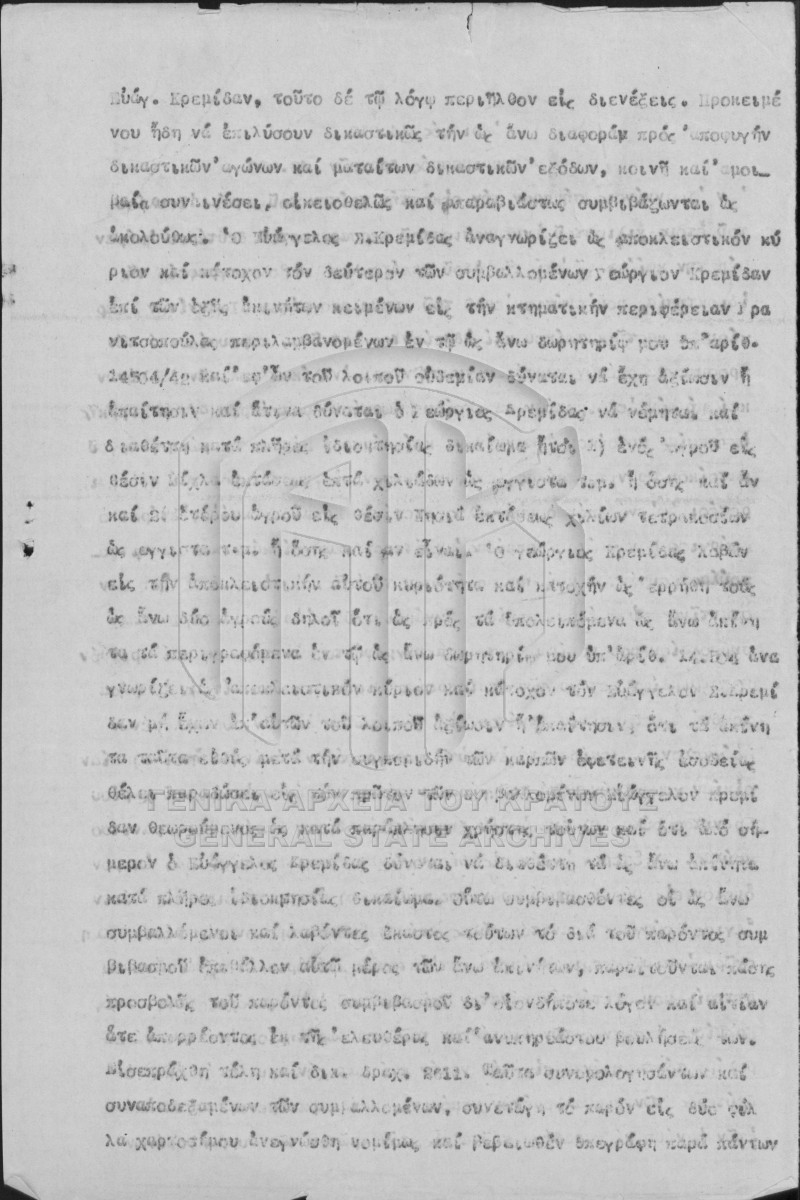 Εὐάγ. Κρεμίδαν, τοῦτο δέ τῷ λόγῳ περιῆλθον εἰς διενέξεις. Προκειμέ
νου ἤδη νά ἐπιλύσουν δικαστικῶς τήν ὡς ἄνω διαφοράμ πρός ἀποφυγήν
δικαστικῶν ἀγώνων καί ματαίων δικαστικῶν ἐξόδων, κοινῇ καί ἀμοι_
βαίᾳ συναινέσει, οἰκειοθελῶς καί ἀπαραβιάστως συμβιβάζονται ὡς
ἀκολούθως. Ὁ Εὐάγγελος Κ.Κρεμίδας ἀναγνωρίζει ὡς ἀποκλειστικόν κύ
ριον καί κάτοχον τόν δεύτερον τῶν συμβαλλομένων Γεώργιον Κρεμίδαν
ἐπί τῶν ἑξῆς ἀκινήτων κειμένων εἰς τήν κτηματικήν περιφέρειαν Γρα
νιτσοπούλας περιλαμβανομένων ἐν τῷ ὡς ἄνω δωρητηρίῳ μου ὑπ'ἀριθ.
καί ἐφ'ὧν τοῦ λοιποῦ οὐδεμίαν δύναται νά ἔχῃ ἀξίωσιν ἤ
ἀπαίτησιν καί ἅτινα δύναται ὁ Γεώργιος Κρεμίδας νά νέμηται καί
διαθέτῃ κατά πλῆρες ἰδιοκτησίας δικαίωμα ἤτοι Α) ἑνός ἀγροῦ εἰς
θέσιν ἐκτάσεως ἑπτά χιλιάδων ὡς ἔγγιστα τ.μ. ἤ ὅσης καί ἄν
καί Β) ἑτέρου ἀγροῦ εἰς θέσιν Νησιά ἐκτάσεως χιλίων τετρακοσίων
ὡς ἔγγιστα τ.μ. ἤ ὅσης καί ἄν εἶναι. Ὁ Γεώργιος Κρεμίδας λαβών
εἰς τήν ἀποκλειστικήν αὐτοῦ κυριότητα καί κατοχήν ὡς ἐρρήθη τούς
ὡς ἄνω δύο ἀγρούς δηλοῖ ὅτι ὡς πρός τά ὑπολειπόμενα ὡς ἄνω ἀκίνη
τα τά περιγραφόμενα ἐν τῷ ὡς ἄνω δωρητηρίῳ μου ὑπ'ἀριθ. ἀνα
γνωρίζει ὡς ἀποκλειστικόν κύριον καί κάτοχον τόν Εὐάγγελον Κ.Κρεμί
δαν μή ἔχων ἐπ'αὐτῶν τοῦ λοιποῦ ἀξίωσιν ἤ ἀπαίτησιν, ὅτι τά ἀκίνη
τα ταῦτα εὐθύς μετά τήν συγκομιδήν τῶν καρπῶν ἐφετεινῆς ἐσοδείας
θέλει παραδώσει εἰς τόν πρῶτον τῶν συμβαλλομένων Εὐάγγελον Κρεμί
δαν θεωρούμενος ὡς κατά παράκλησιν χρήστης τούτων καί ὅτι ἀπό σή-
μερον ὁ Εὐάγγελος Κρεμίδας δύναται νά διαθέτῃ τά ὡς ἄνω ἀκίνητα
κατά πλῆρες ἰδιοκτησίας δικαίωμα. Οὕτω συμβιβασθέντες οἱ ὡς ἄνω
συμβαλλόμενοι καί λαβόντες ἕκαστος τούτων τό διά τοῦ παρόντος συμ
βιβασμοῦ ἐπιβάλλον αὐτῷ μέρος τῶν ἄνω ἀκινήτων, παραιτοῦνται πάσης
προσβολῆς τοῦ παρόντος συμβιβασμοῦ δι'οἱονδήποτε λόγον καί αἰτίαν
ἅτε ἀπορρέοντος ἐκ τῆς ἐλευθέρας καί βουλήσεώς των.
Εἰσεπράχθη τέλη καί δικ. δραχ. 2611. Ταῦτα συνομολογησάντων καί
συναποδεξαμένων τῶν συμβαλλομένων, συνετάγη τό παρόν εἰς δύο φύλ
λα χαρτοσήμου ἀνεγνώσθη νομίμως καί βεβαιωθέν ὑπεγράφη παρά πάντων
ΓΕΝΙΚΑ ΑΡΧΕΙΑ ΤΟΥ ΚΡΑΤΟΥΣ
GENERAL STATE ARCHIVES